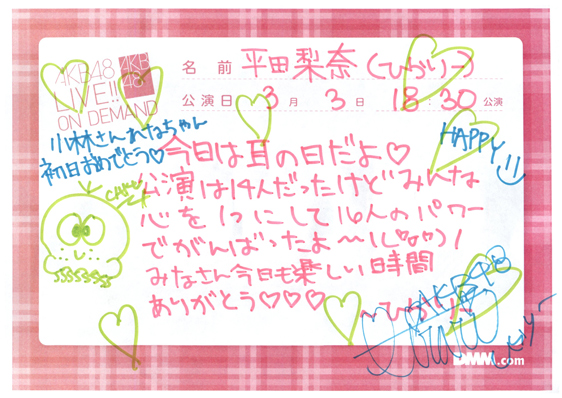 AKB48
LIVE!!
ON DEMAND
AKB
48
名前 平田梨奈(ひらりー)
公演日 3月 3日 18:30 公演
小林さんれなちゃん
初日おめでとう♡
HAPPY
今日は耳の日だよ♡
公演は14人だったけどみんな
心を1つにして16人のパワー
でがんばったよ〜
みなさん今日も楽しい時間
ありがとう♡♡♡
〜ひらりー
DMM.com